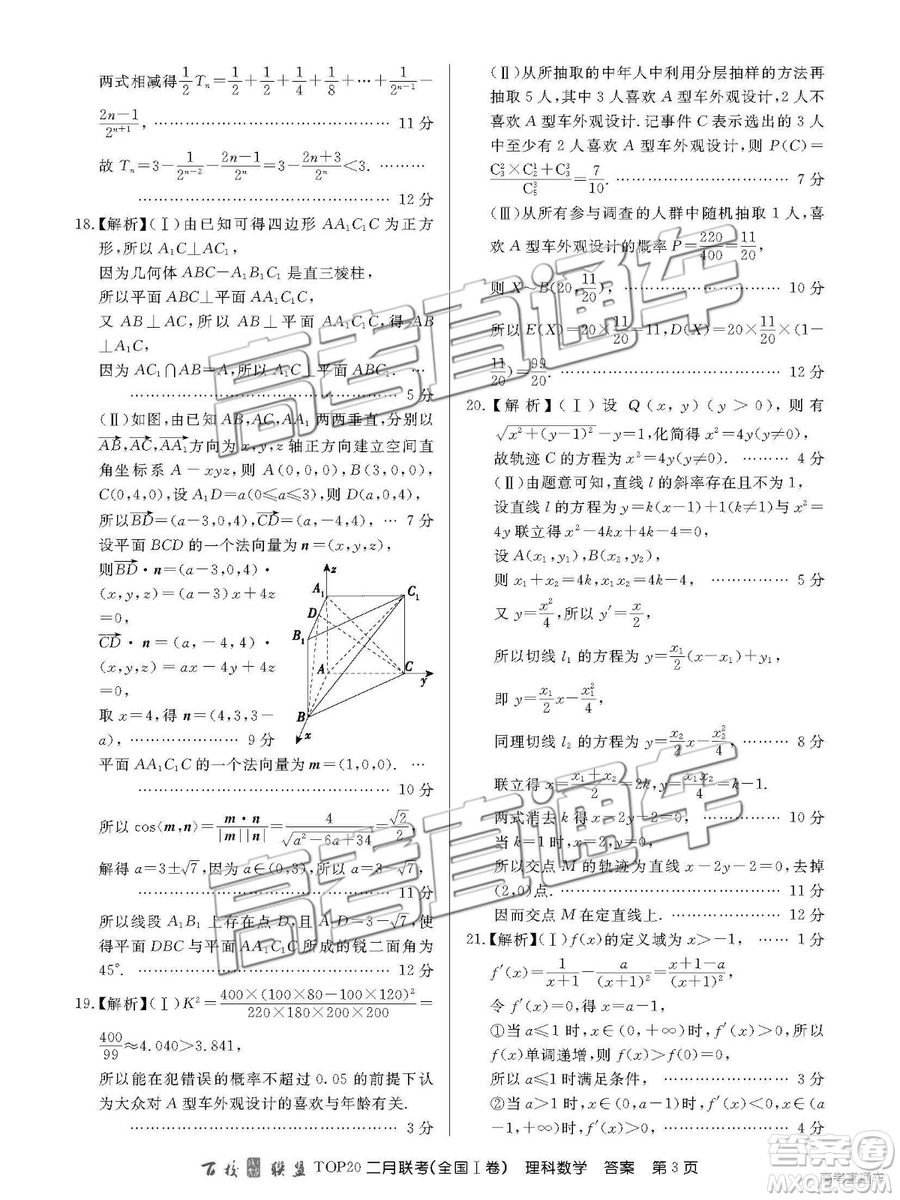 两式相减得 1/2 Tₙ = 1/2 + 1/2 + 1/4 + 1/8 + … + 1/2ⁿ⁻¹ −
(2n−1)/2ⁿ⁺¹, …………………………… 11 分
故 Tₙ = 3 − 1/2ⁿ⁻² − (2n−1)/2ⁿ = 3 − (2n+3)/2ⁿ < 3. …………
…………………………… 12 分
18.【解析】(Ⅰ)由已知可得四边形 AA₁C₁C 为正方
形,所以 A₁C⊥AC₁,
因为几何体 ABC−A₁B₁C₁ 是直三棱柱,
所以平面 ABC⊥平面 AA₁C₁C.
又 AB⊥AC,所以 AB⊥平面 AA₁C₁C,得 AB
⊥A₁C,
因为 AC₁∩AB=A,所以 A₁C⊥平面 ABC₁. …
…………………………… 5 分
(Ⅱ)如图,由已知 AB,AC,AA₁ 两两垂直,分别以
AB→,AC→,AA₁→方向为 x,y,z 轴正方向建立空间直
角坐标系 A−xyz,则 A(0,0,0),B(3,0,0),
C(0,4,0),设 A₁D=a(0≤a≤3),则 D(a,0,4),
所以BD→=(a−3,0,4),CD→=(a,−4,4), … 7 分
设平面 BCD 的一个法向量为 n=(x,y,z),
则BD→·n=(a−3,0,4)·
(x,y,z)=(a−3)x+4z
=0,
CD→·n=(a,−4,4)·
(x,y,z)=ax−4y+4z
=0,
取 x=4,得 n=(4,3,3−
a), ……………… 9 分
z
A₁
C₁
D
B₁
A
C
y
B
x
平面 AA₁C₁C 的一个法向量为 m=(1,0,0). …
…………………………… 10 分
所以 cos⟨m,n⟩ = m·n/(|m||n|) = 4/√(a²−6a+34) = √2/2,
解得 a=3±√7,因为 a∈(0,3),所以 a=3−√7,
…………………………… 11 分
所以线段 A₁B₁ 上存在点 D,且 A₁D=3−√7,使
得平面 DBC 与平面 AA₁C₁C 所成的锐二面角为
45°. …………………………… 12 分
19.【解析】(Ⅰ)K² = 400×(100×80−100×120)²/(220×180×200×200) =
400/99 ≈4.040>3.841,
所以能在犯错误的概率不超过 0.05 的前提下认
为大众对 A 型车外观设计的喜欢与年龄有关.
…………………………… 3 分
(Ⅱ)从所抽取的中年人中利用分层抽样的方法再
抽取 5 人,其中 3 人喜欢 A 型车外观设计,2 人不
喜欢 A 型车外观设计.记事件 C 表示选出的 3 人
中至少有 2 人喜欢 A 型车外观设计,则 P(C)=
(C₃²×C₂¹+C₃³)/C₅³ = 7/10. …………………… 7 分
(Ⅲ)从所有参与调查的人群中随机抽取 1 人,喜
欢 A 型车外观设计的概率 P = 220/400 = 11/20,
则 X~B(20, 11/20), …………………… 10 分
所以 E(X)=20×11/20=11,D(X)=20×11/20×(1−
11/20)=99/20. …………………… 12 分
20.【解析】(Ⅰ)设 Q(x,y)(y>0),则有
√(x²+(y−1)²)−y=1,化简得 x²=4y(y>0),
故轨迹 C 的方程为 x²=4y(y>0). ……… 4 分
(Ⅱ)由题意可知,直线 l 的斜率存在且不为 1,
设直线 l 的方程为 y=k(x−1)+1(k≠1)与 x²=
4y 联立得 x²−4kx+4k−4=0,
设 A(x₁,y₁),B(x₂,y₂),
则 x₁+x₂=4k,x₁x₂=4k−4, …………… 5 分
又 y=x²/4,所以 y′=x/2,
所以切线 l₁ 的方程为 y=x₁/2(x−x₁)+y₁,
即 y=x₁/2 x−x₁²/4,
同理切线 l₂ 的方程为 y=x₂/2 x−x₂²/4, …… 8 分
联立得 x=(x₁+x₂)/2=2k,y=x₁x₂/4=k−1.
两式消去 k 得 x−2y−2=0, ………… 10 分
当 k=1 时,x=2,y=0,
所以交点 M 的轨迹为直线 x−2y−2=0,去掉
(2,0)点. …………………… 11 分
因而交点 M 在定直线上. …………… 12 分
21.【解析】(Ⅰ)f(x)的定义域为 x>−1, …… 1 分
f′(x)=1/(x+1)−a/(x+1)²=(x+1−a)/(x+1)²,
令 f′(x)=0,得 x=a−1,
①当 a≤1 时,x∈(0,+∞)时,f′(x)>0,所以
f(x)单调递增,
所以 a≤1 时满足条件, …………… 3 分
②当 a>1 时,x∈(0,a−1)时,f′(x)<0,
x∈(a−1,+∞)时,f′(x)>0, ………… 4 分
百校联盟 TOP20 二月联考(全国Ⅰ卷) 理科数学 答案 第 3 页
高考直通车
高考直通车
高考直通车